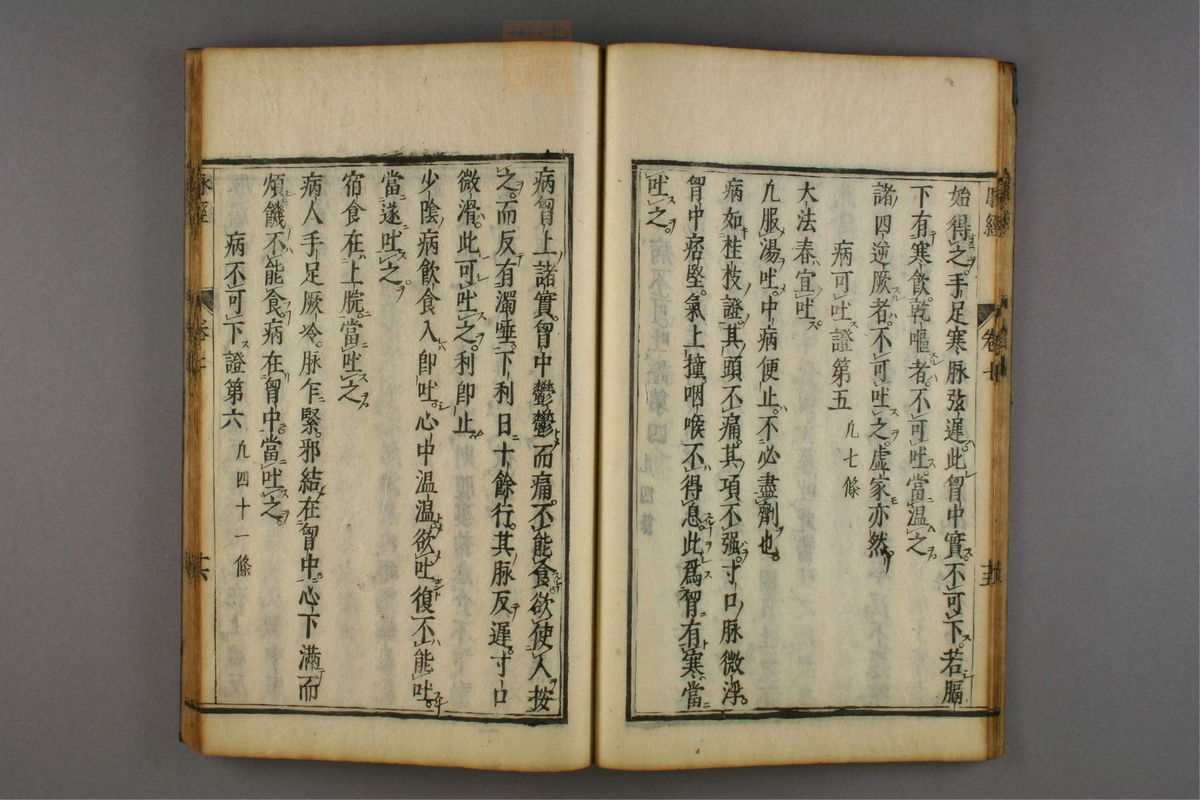 脉經
卷七
始得之手足寒脉弦遲此胷中實不可下若膈
下有寒飲乾嘔者不可吐當温之
諸四逆厥者不可吐之虚家亦然
病可吐證第五 凢七條
大法春宜吐
凢服湯吐中病便止不必盡劑也
病如桂枝證其頭不痛其項不强寸口脉微浮
胷中痞堅氣上撞咽喉不得息此爲胷有寒當
吐之
病胷上諸實胷中鬱鬱而痛不能食欲使人按
之而反有濁唾下利日十餘行其脉反遲寸口
微滑此可吐之利即止
少陰病飲食入即吐心中温温欲吐復不能吐
當遂吐之
宿食在上脘當吐之
病人手足厥冷脉乍緊邪結在胷中心下滿而
煩饑不能食病在胷中當吐之
病不可下證第六 凢四十一條